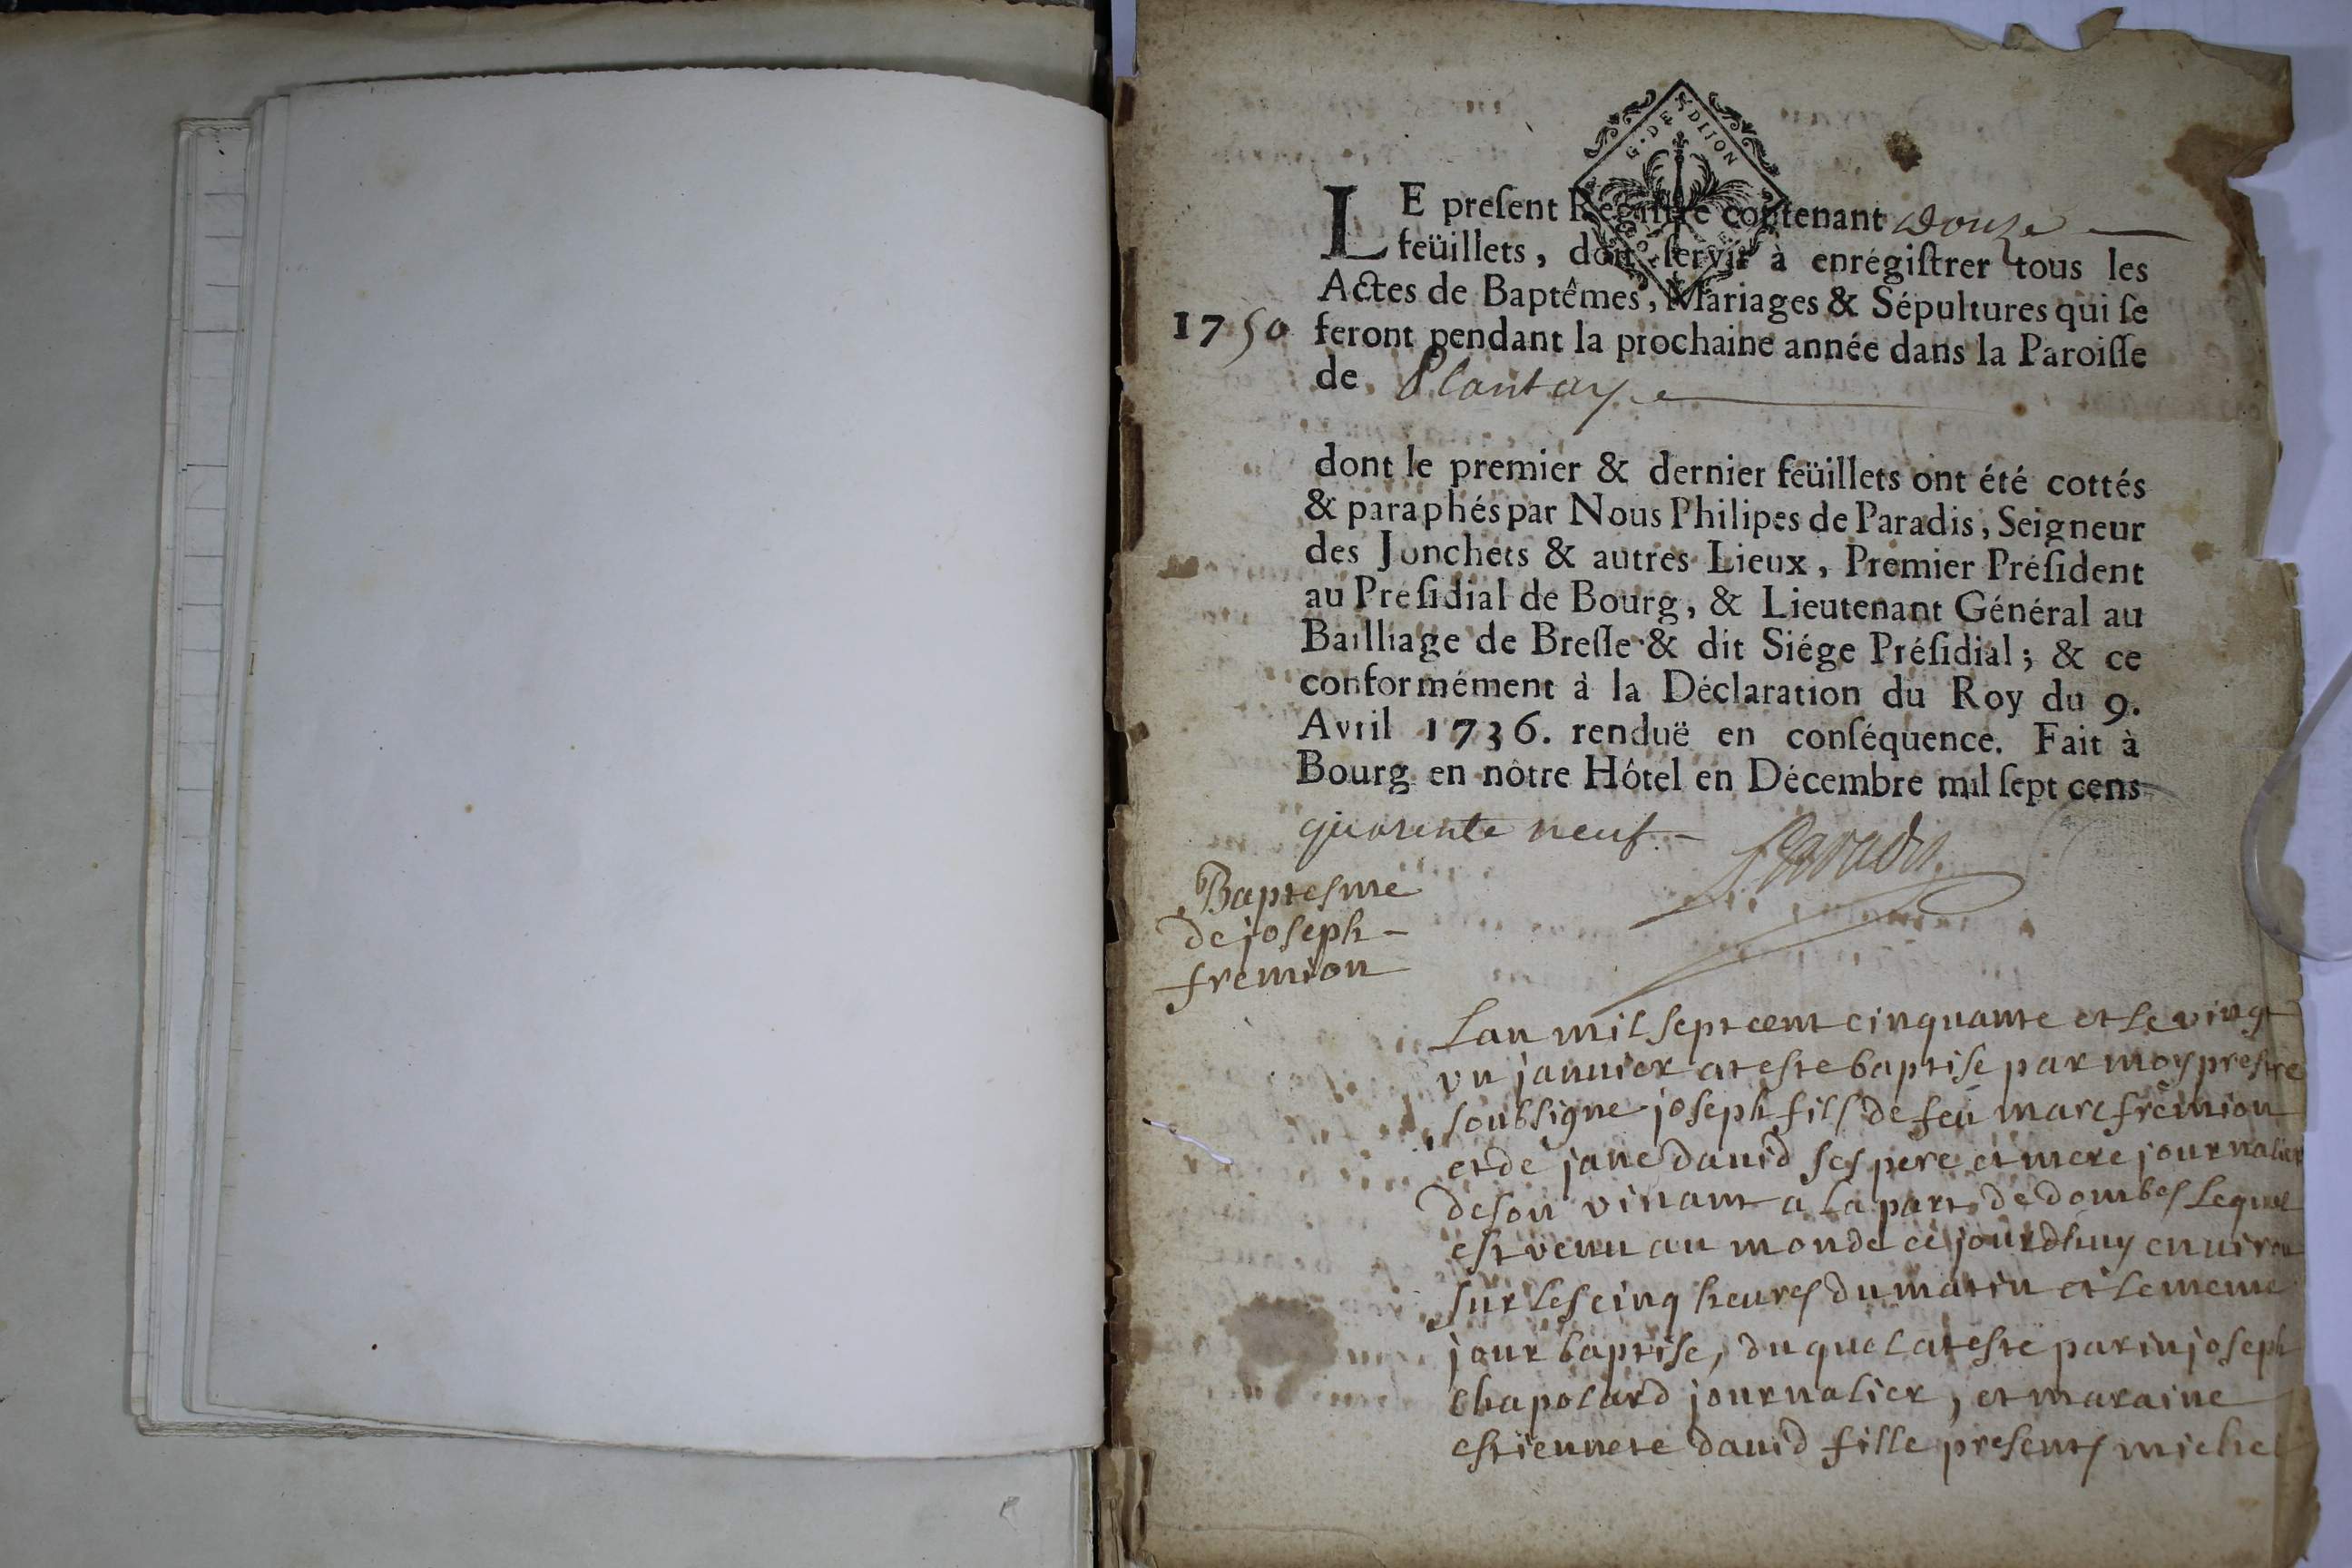 G. DE DIJON
LE preſent Regiſtre contenant Douze
feüillets, doit ſervir à enrégiſtrer tous les
Actes de Baptêmes, Mariages & Sépultures qui ſe
1750 feront pendant la prochaine année dans la Paroiſſe
de Plantay
dont le premier & dernier feüillets ont été cottés
& paraphés par Nous Philipes de Paradis, Seigneur
des Jonchets & autres Lieux, Premier Préſident
au Preſidial de Bourg, & Lieutenant Général au
Bailliage de Breſſe & dit Siége Préſidial ; & ce
conformément à la Déclaration du Roy du 9.
Avril 1736. renduë en conſéquence. Fait à
Bourg en nôtre Hôtel en Décembre mil ſept cens
quarente neuf Paradis
Baptesme
de joseph
fremion
Lan mil sept cent cinquante et le vingt
vn januier at este baptise par moy prestre
soubsigne joseph fils de feu marc fremion
et de jane dauid ses pere et mere journalier
de son viuant a la part de dombes lequel
est venu au monde ce jourdhuy enuiron
sur les cinq heures du matin et le meme
jour baptise, du quel at este parin joseph
chapolard journalier, et maraine
estiennete dauid fille presents michel